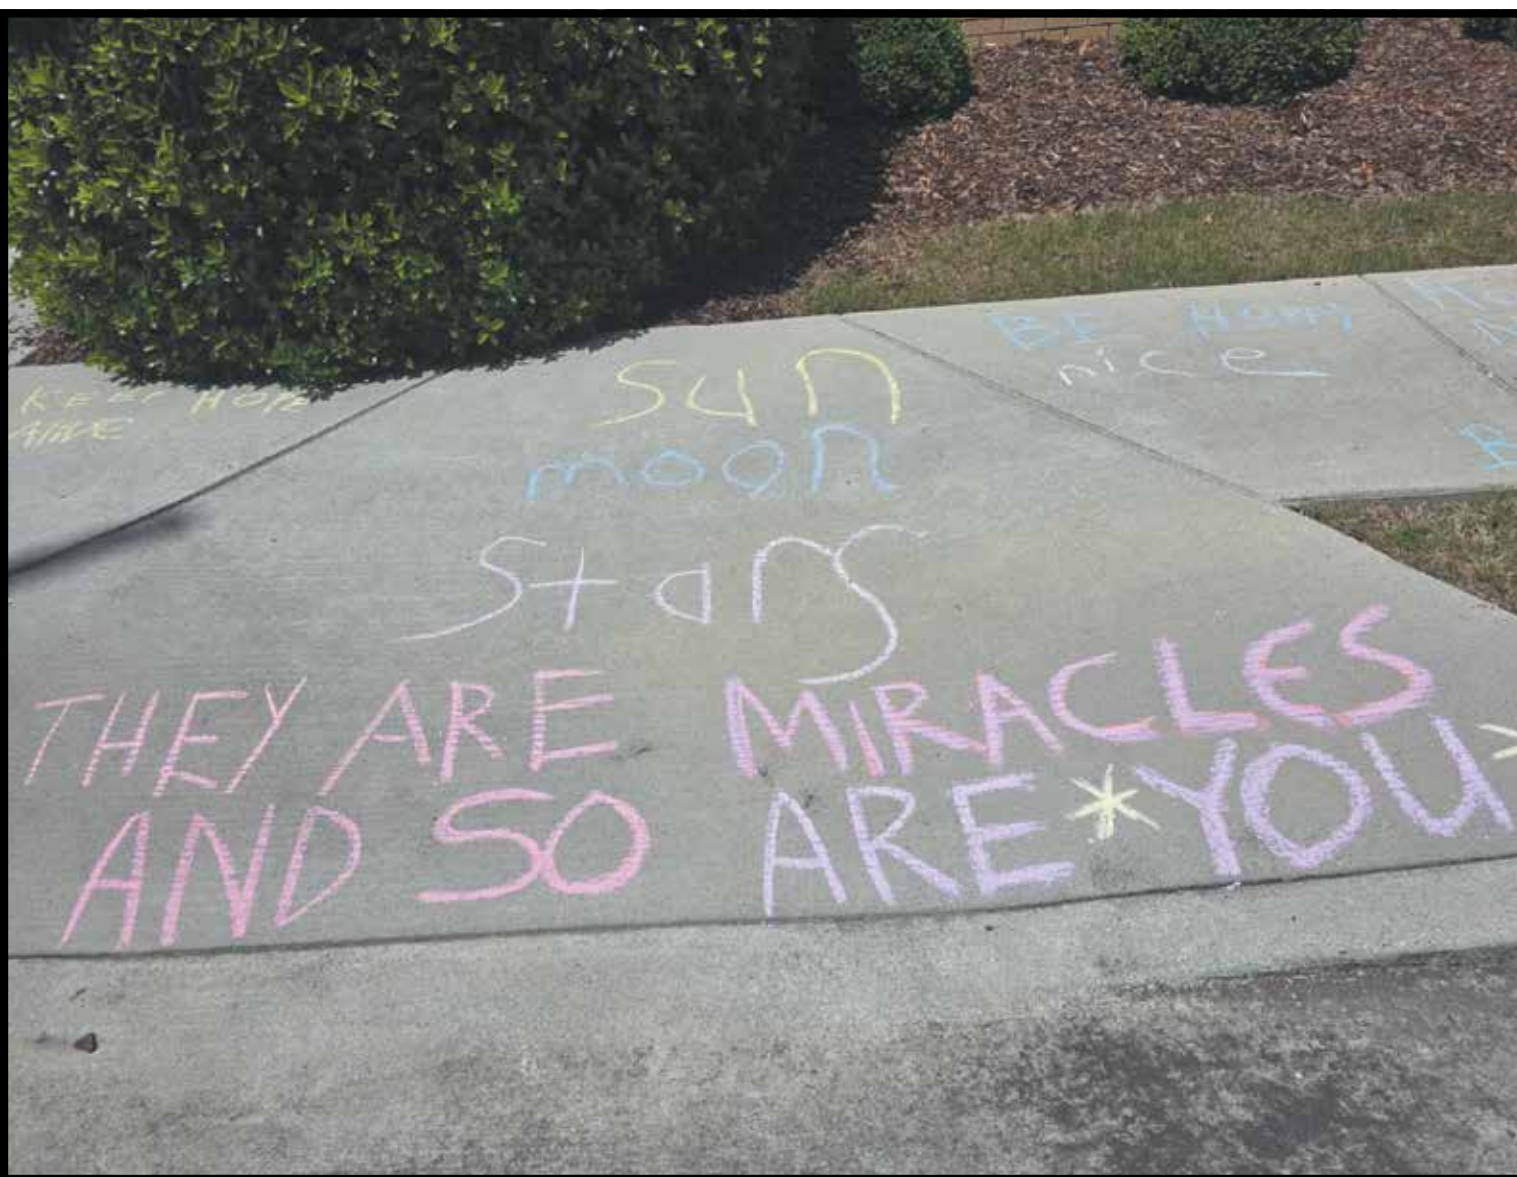 KEEP HOPE
ALIVE
sun
moon
stars
THEY ARE MIRACLES
AND SO ARE * YOU *
BE Happy
nice